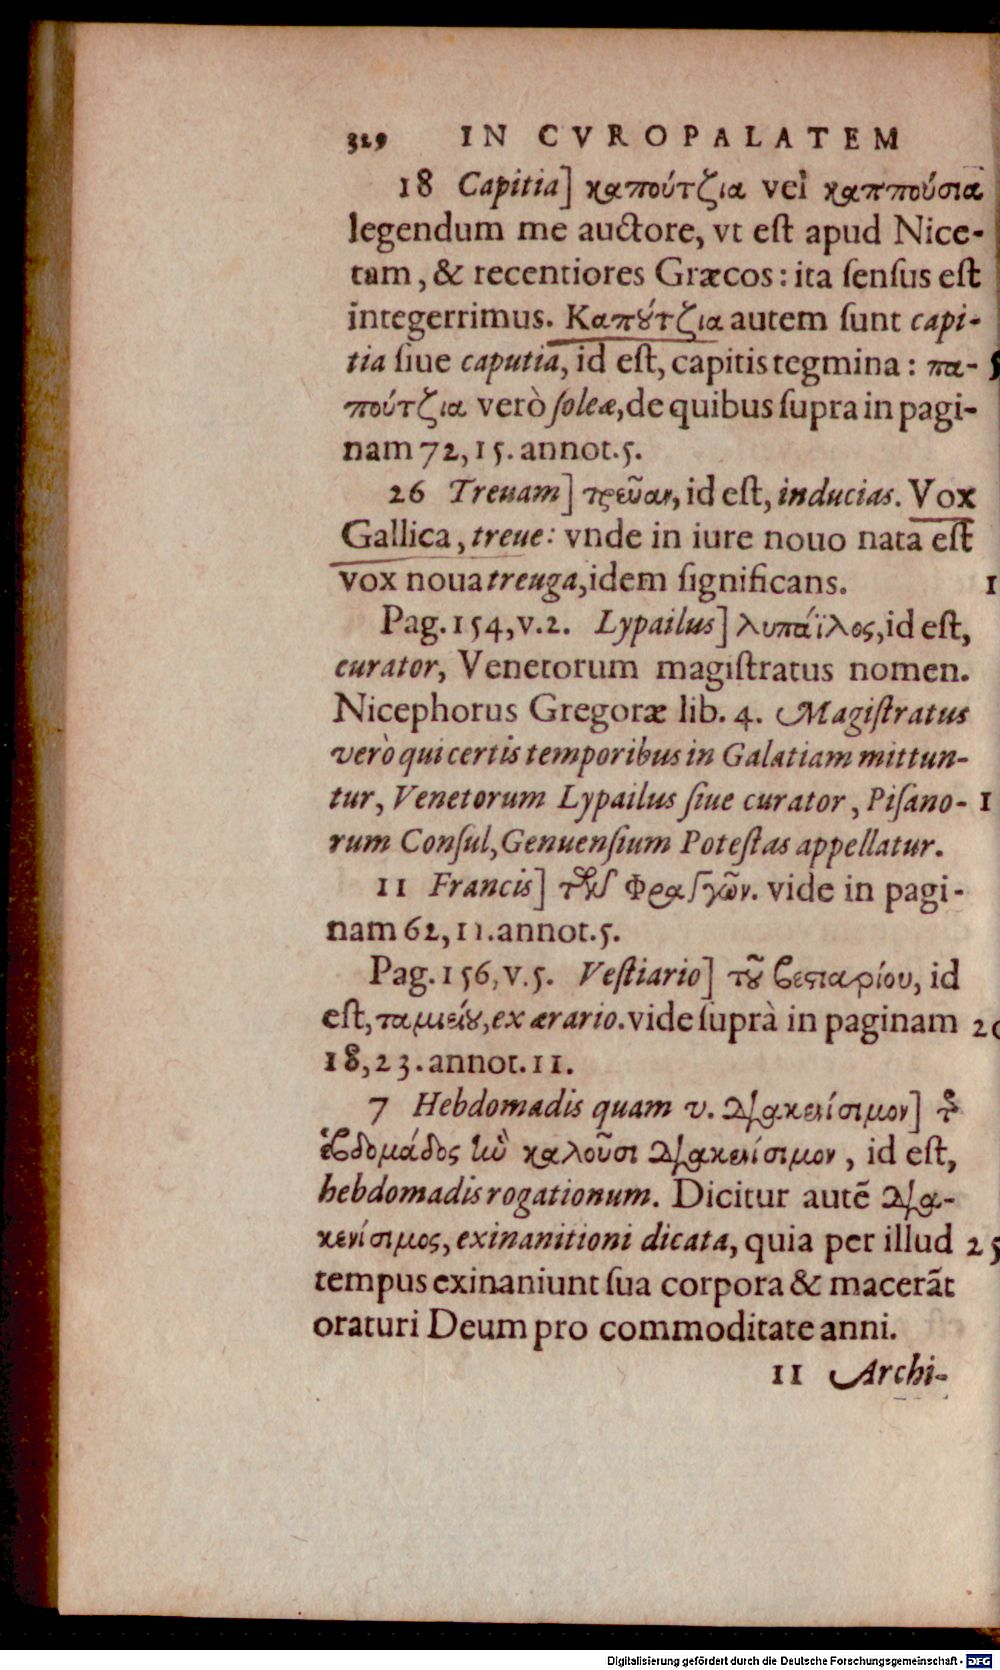 329 IN CVROPALATEM
18 Capitia] καπούτζια vel καππούσια
legendum me auctore, vt est apud Nice-
tam, & recentiores Græcos: ita sensus est
integerrimus. Καπούτζια autem sunt capi-
tia siue caputia, id est, capitis tegmina: πα-
πούτζια verò soleæ, de quibus supra in pagi-
nam 72, 15. annot. 5.
26 Treuam] τρεῦαν, id est, inducias. Vox
Gallica, treue: vnde in iure nouo nata est
vox noua treuga, idem significans.
Pag. 154, v. 2. Lypailus] λυπάϊλος, id est,
curator, Venetorum magistratus nomen.
Nicephorus Gregoræ lib. 4. Magistratus
verò qui certis temporibus in Galatiam mittun-
tur, Venetorum Lypailus siue curator, Pisano-
rum Consul, Genuensium Potestas appellatur.
11 Francis] τοὺς Φραγγῶν. vide in pagi-
nam 62, 11. annot. 5.
Pag. 156, v. 5. Vestiario] τοῦ βεστιαρίου, id
est, ταμιείου, ex ærario. vide suprà in paginam 20
18, 23. annot. 11.
7 Hebdomadis quam v. διακενίσιμον] τῆς
ἑβδομάδος ἣν καλοῦσι διακενίσιμον, id est,
hebdomadis rogationum. Dicitur autẽ δια-
κενίσιμος, exinanitioni dicata, quia per illud 25
tempus exinaniunt sua corpora & macerãt
oraturi Deum pro commoditate anni.
11 Archi-
Digitalisierung gefördert durch die Deutsche Forschungsgemeinschaft - DFG